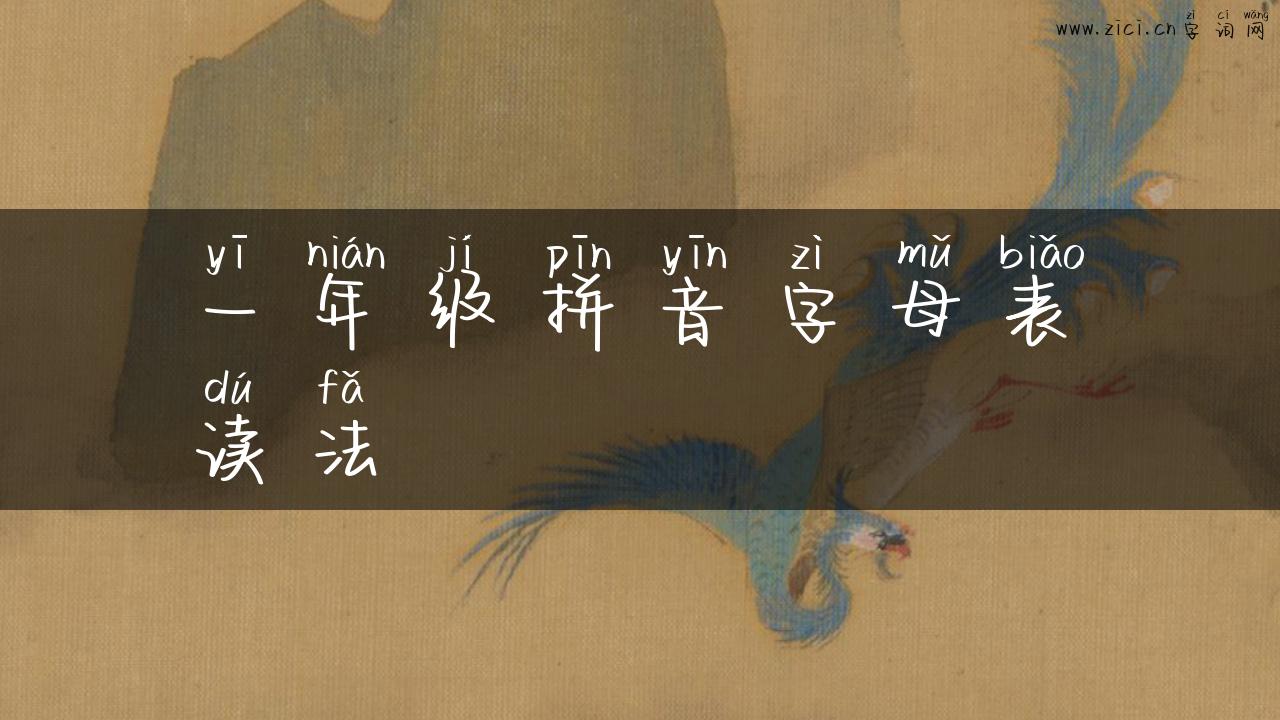 zì cí wǎng
www.zici.cn 字 词 网
yī nián jí pīn yīn zì mǔ biǎo
一 年 级 拼 音 字 母 表
dú fǎ
读 法